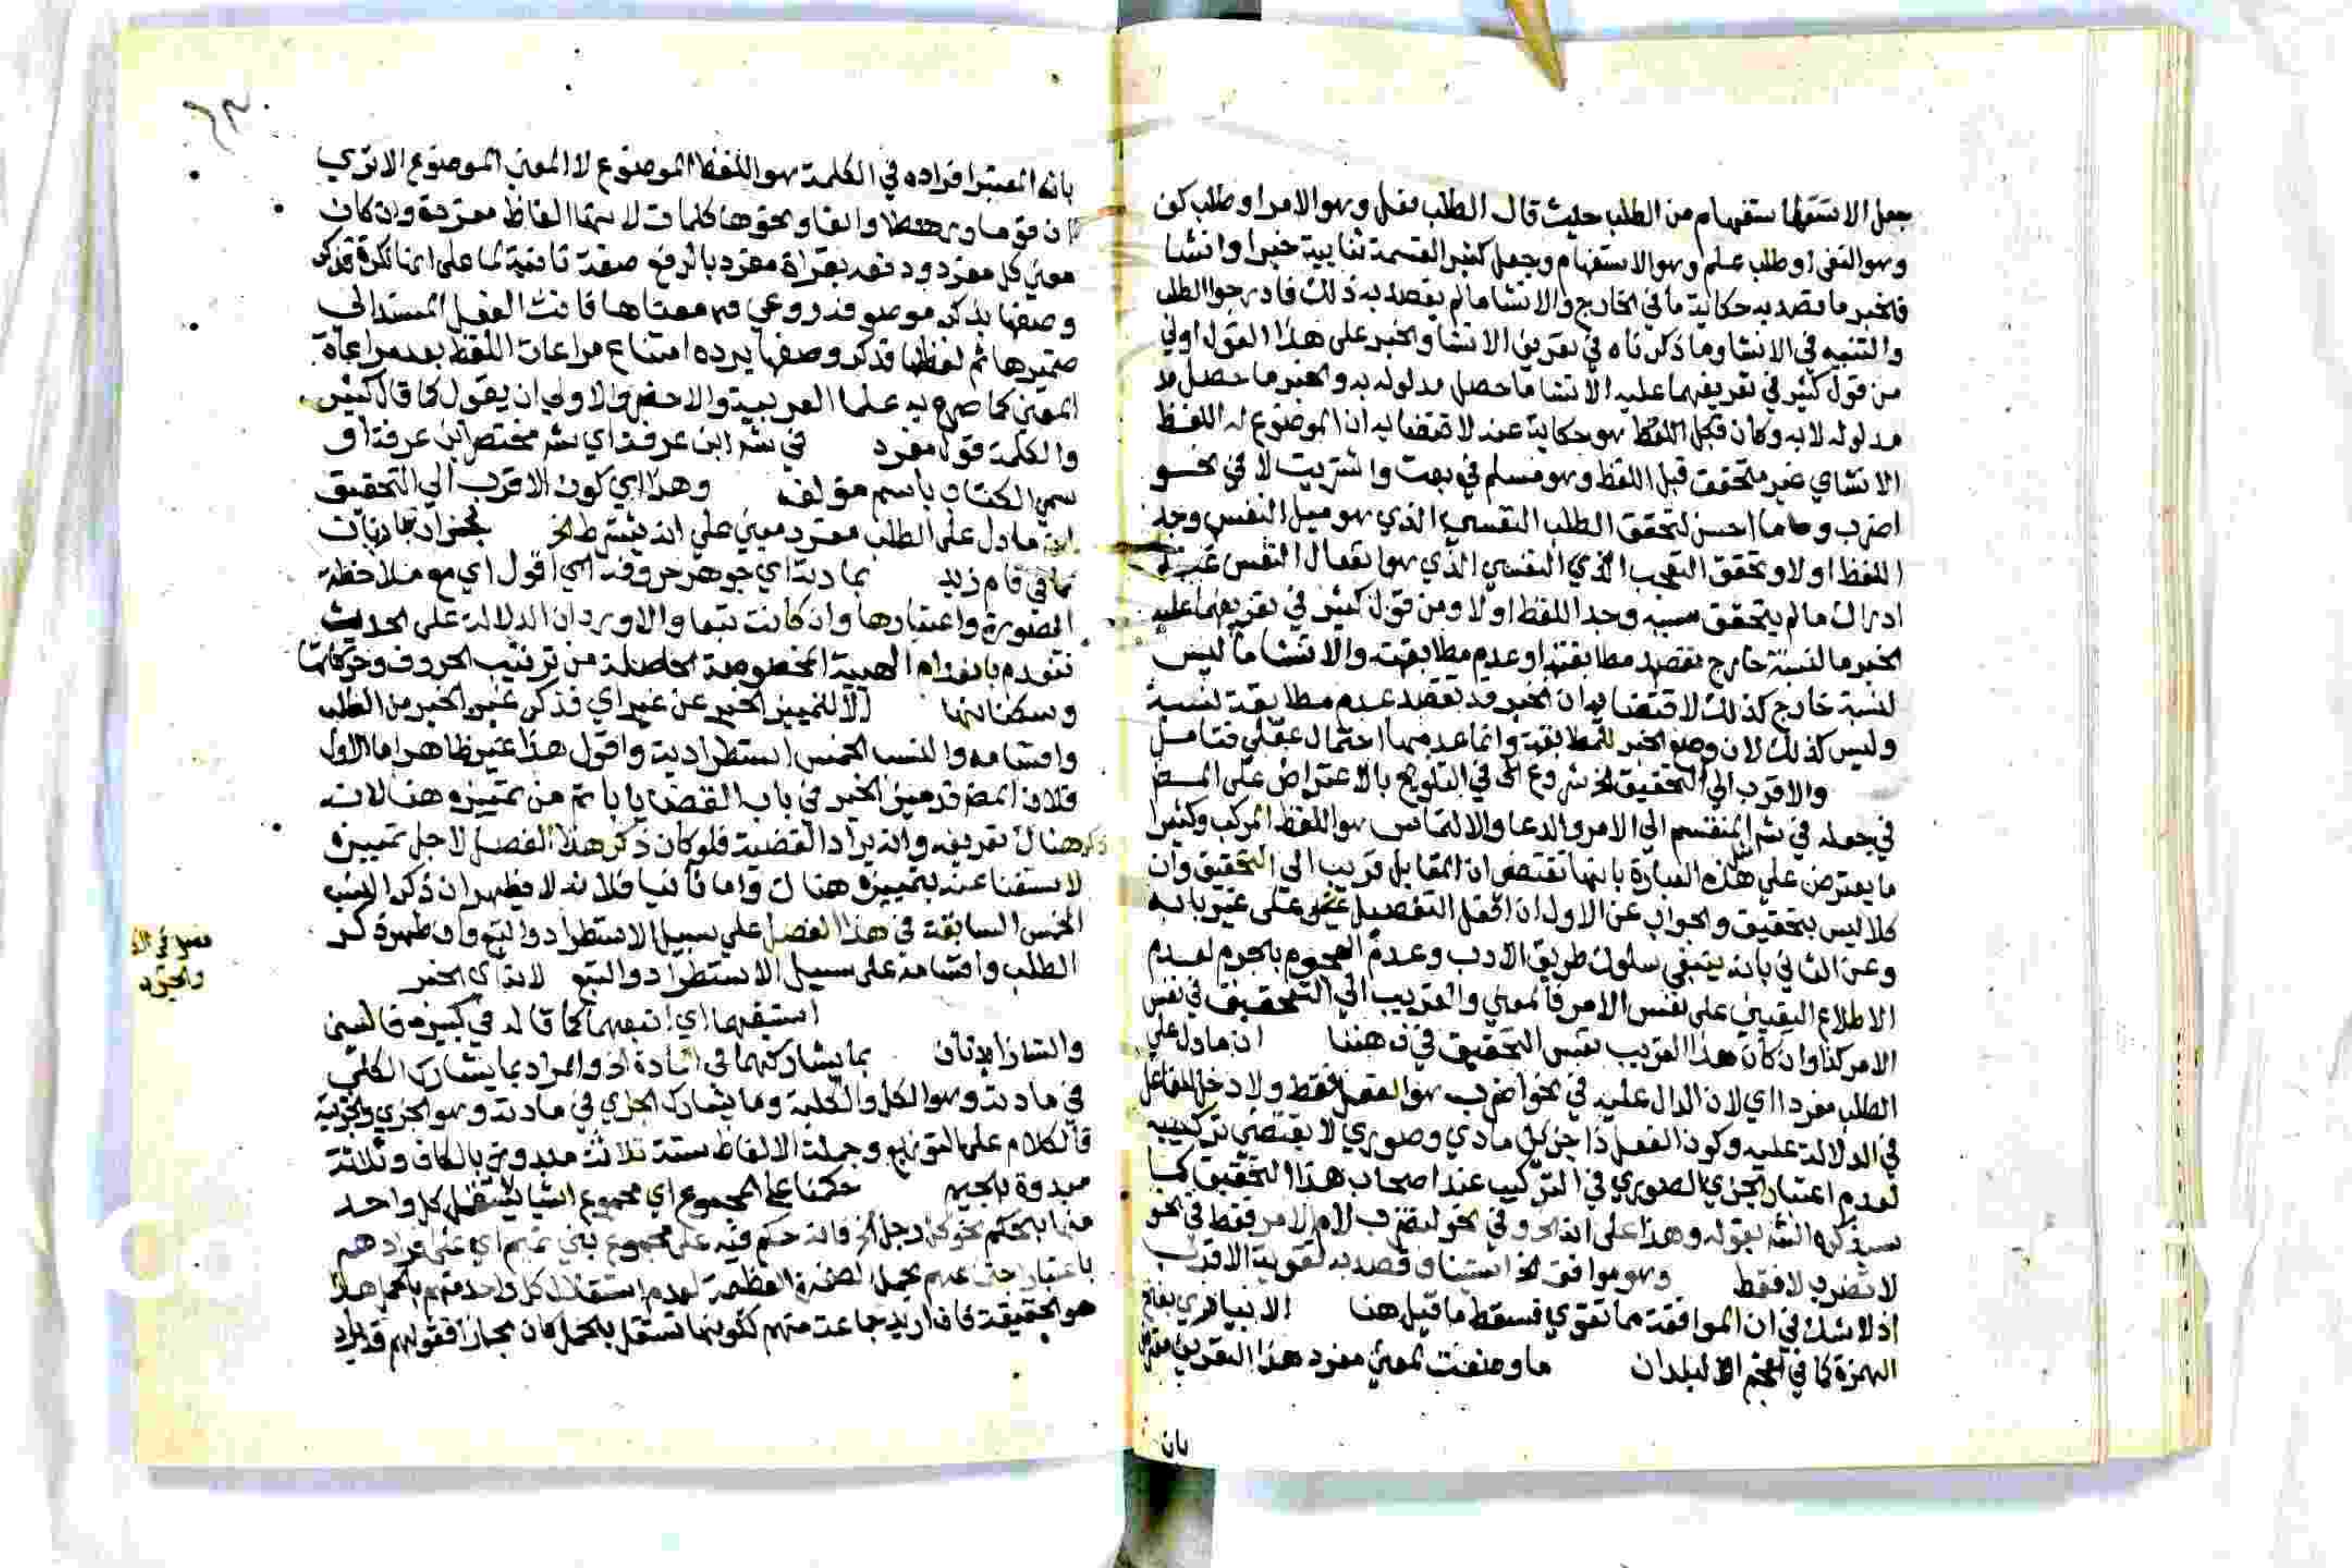 جعل الاستفهام من الطلب حيث قال الطلب فعل وهو الامر او طلب كف
وهو النهى او طلب علم وهو الاستفهام وجعل كثير القسمة ثنايية خبرا وانشا
فالخبر ما قصد به حكاية ما في الخارج والانشا ما لم يقصد به ذلك فادرجوا الطلب
والتنبيه في الانشا وما ذكرناه في تعريف الانشا والخبر على هذا القول اولي
من قول كثير في تعريفهما عليه الانشا ما حصل مدلوله به والخبر ما حصل
مدلوله لا به وكان قبل اللفظ هو حكاية عنه لاقتضايه ان الموضوع له اللفظ
الانشاي غير متحقق قبل اللفظ وهو مسلم في بعت واشتريت لا في نحو
اضرب وما احسن لتحقق الطلب النفسي الذي هو ميل النفس وجد
اللفظ اولا وتحقق التعجب النفسي الذي هو انفعال النفس عند
ادراك ما لم يتحقق سببه وجد اللفظ اولا ومن قول كثير في تعريفهما عليه
الخبر ما لنسبة خارج تقصد مطابقته او عدم مطابقته والانشا ما ليس
لنسبة خارج كذلك لاقتضايه ان الخبر قد تقصد عدم مطابقة لنسبة
وليس كذلك لان وضع الخبر للمطابقة وانما عدمها احتمال عقلي فتامل
والاقرب الي التحقيق الخ شروع في التلويح بالاعتراض على المص
في جعله في شر المنقسم الي الامر والدعا والالتماس هو اللفظ المركب وكثيرا
ما يعترض على هذه العبارة بانها تقتضى ان المقابل قريب الى التحقيق وان
كلا ليس بتحقيق والجواب عن الاول ان افعل التفضيل على غير بابه
وعن الثاني بانه ينبغي سلوك طريق الادب وعدم الهجوم بالجزم لعدم
الاطلاع اليقيني على نفس الامر فالمعني والقريب الي التحقيق في نفس
الامر كذا وان كان هذا القريب نفس التحقيق في ذهننا ان ما دل علي
الطلب مفرد اي لان الدال عليه في نحو اضرب هو الفعل فقط ولا دخل للفاعل
في الدلالة عليه وكون الفعل ذا جزئين مادي وصوري لا يقتضي تركيبه
لعدم اعتبار الجزي الصوري في التركيب عند اصحاب هذا التحقيق كما
سيذكره الش بقوله وهذا على اند وفي نحو ليضرب لام الامر فقط في نحو
لا تضرب لا فقط وهو موافق الخ استيناف قصد به تقوية الاقرب
اذ لا شك في ان الموافقة مما تقوي فسقط ما قيل هنا الانبياري بفتح
الهمزة كما في معجم البلدان ما وضعت لمعني مفرد هذا التعريف
بان
بان المعتبر افراده في الكلمة هو اللفظ الموضوع لا المعني الموضوع الا تري
ان قوما ورهطا والفا ونحوها كلمات لانها الفاظ مفردة وان كان
معني كل مفرد ودفعه بقراة مفرد بالرفع صفة ثانية لما على انها نكرة قد ذكر
وصفها بذكر موصوفه روعي فيه معناها فانث الفعل المسند الي
ضميرها ثم لفظها فذكر وصفها يرده امتناع مراعات اللفظ بعد مراعاة
المعني كما صرح به علما العربية والاحضر والاولي ان يقول كما قال كثير
والكلمة قول مفرد في شر ابن عرفة اي شر مختصر ابن عرفة او
سمي الكتاب باسم مؤلفه وهذا اي كون الاقرب الي التحقيق
ان ما دل على الطلب مفرد مبني على انه يشترط الخ
كما في قام زيد بمادية اي جوهر حروفه اي اقول اي مع ملاحظة
الصورة واعتبارها وان كانت تبعا والا ورد ان الدلالة على الحدث
تنعدم بانعدام الهيية المخصوصة الحاصلة من ترتيب الحروف وحركاتها
وسكناتها لتمييز الخبر عن غير اي فذكر غير الخبر من الطلب
واقسامه والنسب الخمس استطرادية واقول هذا غير ظاهر اما الاول
فلان المص قد ميز الخبر في باب القضايا باتم من تمييزه هنا لانه
ذكر هناك تعريفه وانه يرادف القضية فلو كان ذكر هذا الفصل لاجل تمييزه
لاستغنا عنه بتمييزه هناك واما ثانيا فلانه لا يظهر ان ذكر النسب
الخمس السابقة في هذا الفصل على سبيل الاستطراد والتبع وان ظهر ذكر
الطلب واقسامه على سبيل الاستطراد والتبع لانه اي الخبر
استتبعها اي اتبعهما كما قاله في كبيره فالسين
والتا زايدتان بما يشاركهما في المادة اذ والمراد بما يشارك الكلي
في مادته وهو الكل والكلية وما يشارك الجزي في مادته وهو الجزء والجزية
فالكلام على التوزيع وجملة الالفاظ ستة ثلاثة مبدوة بالكاف وثلاثة
مبدوة بالجيم حكمنا على المجموع اي مجموع اشيا يستقل كل واحد
منها بالحكم نحو كل رجل الخ فانه حكم فيه على مجموع بني تميم اي على افرادهم
باعتبار اجتماعهم بحمل الصخرة العظيمة لعدم استقلال كل واحد منهم بالحمل هذا
هو الحقيقة فان اريد جماعة منهم لكونها تستقل بالحمل كان مجازا فقولهم قد يراد